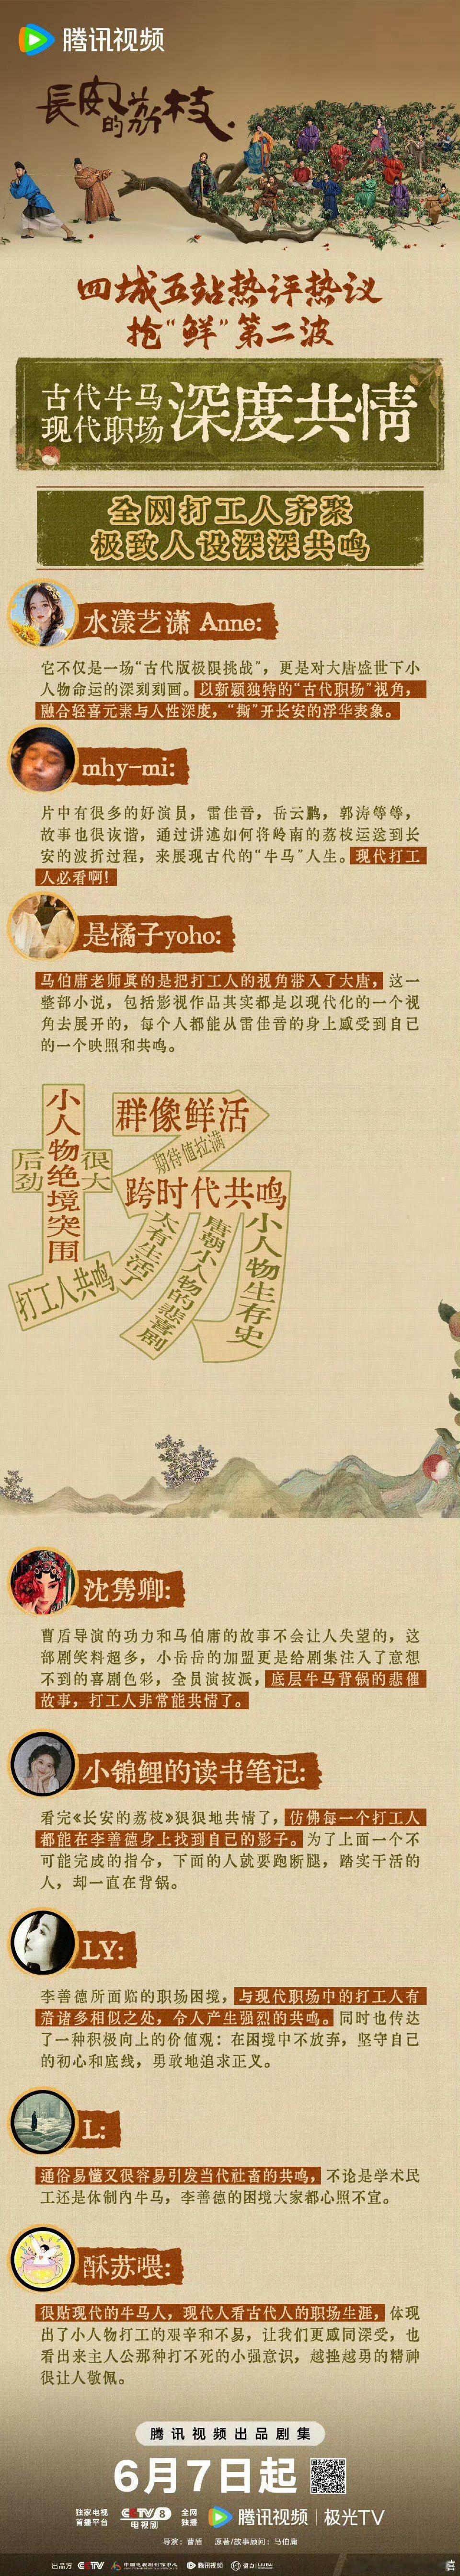 腾讯视频
長安的荔枝
四城五站热评热议
抢“鲜”第二波
古代牛马
现代职场
深度共情
全网打工人齐聚
极致人设深深共鸣
水漾艺潇 Anne:
它不仅是一场“古代版极限挑战”，更是对大唐盛世下小
人物命运的深刻刻画。以新颖独特的“古代职场”视角，
融合轻喜元素与人性深度，“撕”开长安的浮华表象。
mhy-mi:
片中有很多的好演员，雷佳音，岳云鹏，郭涛等等，
故事也很诙谐，通过讲述如何将岭南的荔枝运送到长
安的波折过程，来展现古代的“牛马”人生。现代打工
人必看啊！
是橘子yoho:
马伯庸老师真的是把打工人的视角带入了大唐，这一
整部小说，包括影视作品其实都是以现代化的一个视
角去展开的，每个人都能从雷佳音的身上感受到自己
的一个映照和共鸣。
小人物绝境突围
后劲很大
打工人共鸣
群像鲜活
期待值拉满
跨时代共鸣
太有生活了
唐朝小人物的悲喜剧
小人物生存史
沈隽卿:
曹盾导演的功力和马伯庸的故事不会让人失望的，这
部剧笑料超多，小岳岳的加盟更是给剧集注入了意想
不到的喜剧色彩，全员演技派，底层牛马背锅的悲催
故事，打工人非常能共情了。
小锦鲤的读书笔记:
看完《长安的荔枝》狠狠地共情了，仿佛每一个打工人
都能在李善德身上找到自己的影子。为了上面一个不
可能完成的指令，下面的人就要跑断腿，踏实干活的
人，却一直在背锅。
LY:
李善德所面临的职场困境，与现代职场中的打工人有
着诸多相似之处，令人产生强烈的共鸣。同时也传达
了一种积极向上的价值观：在困境中不放弃，坚守自己
的初心和底线，勇敢地追求正义。
L:
通俗易懂又很容易引发当代社畜的共鸣，不论是学术民
工还是体制内牛马，李善德的困境大家都心照不宣。
酥苏喂:
很贴现代的牛马人，现代人看古代人的职场生涯，体现
出了小人物打工的艰辛和不易，让我们更感同深受，也
看出来主人公那种打不死的小强意识，越挫越勇的精神
很让人敬佩。
腾讯视频出品剧集
6月7日起
独家电视
首播平台
CCTV 8
电视剧
全网
独播
腾讯视频 | 极光TV
导演：曹盾 原著/故事顾问：马伯庸
出品方 CCTV 中国电视剧制作中心 腾讯视频 留白